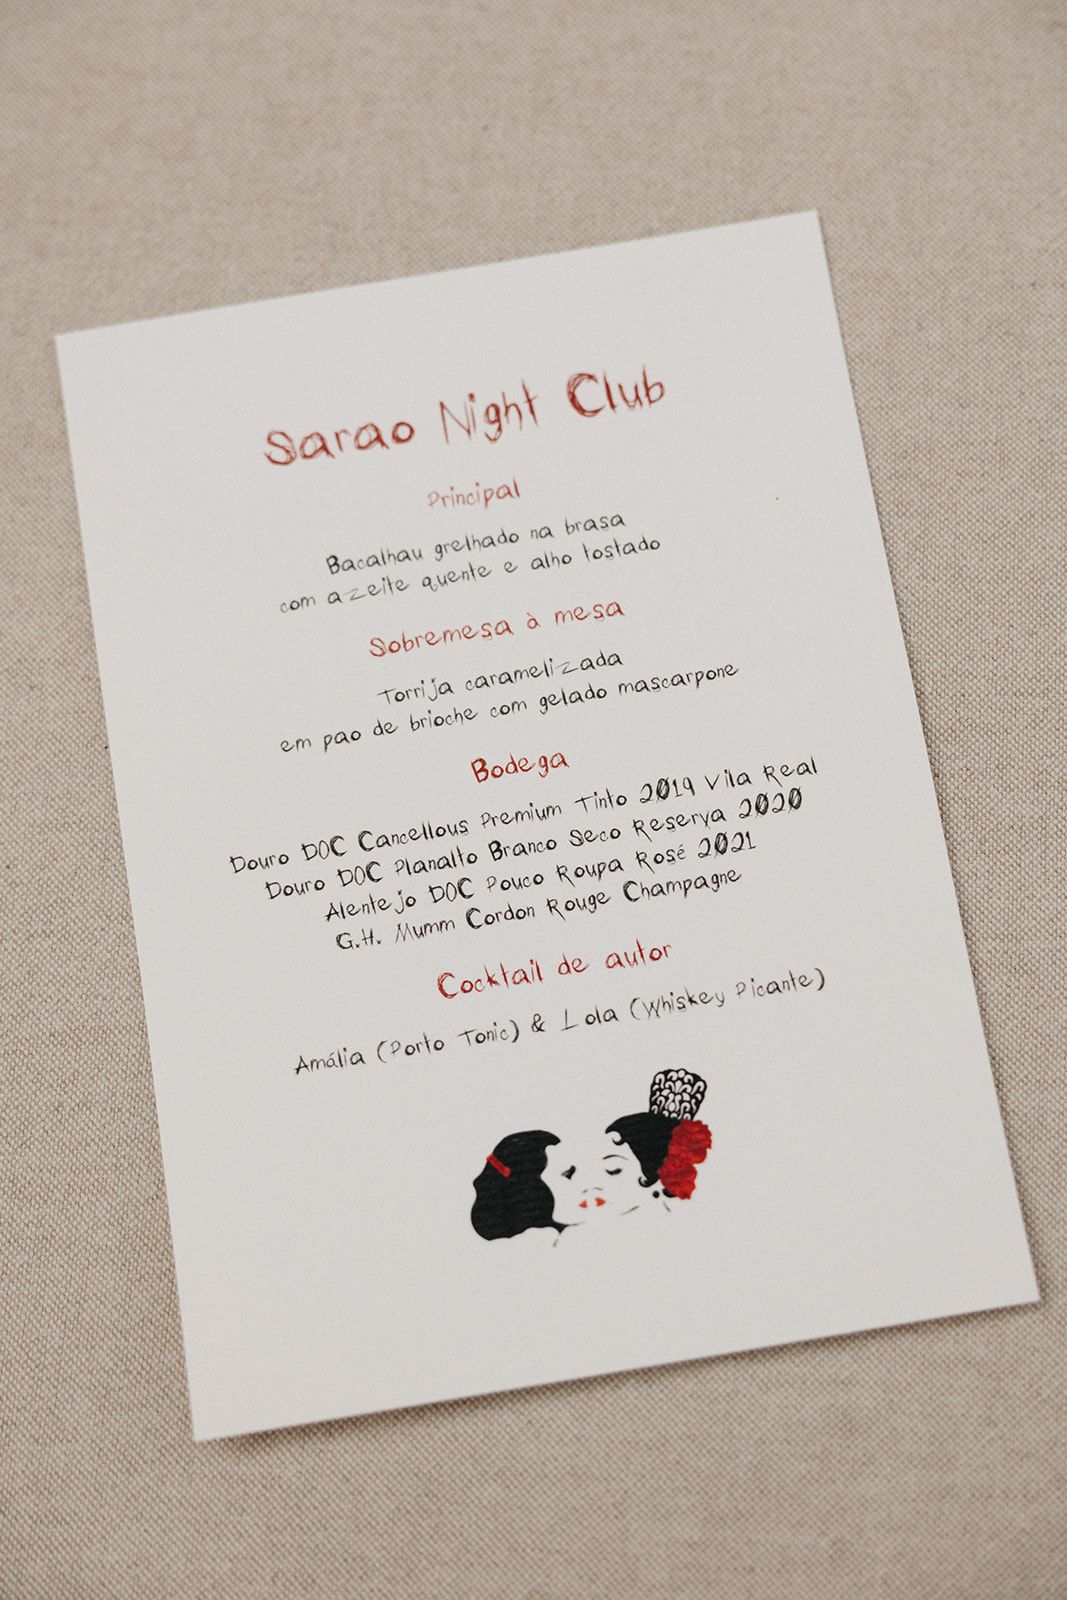 Sarao Night Club
Principal
Bacalhau grelhado na brasa
com azeite quente e alho tostado
Sobremesa à mesa
Torrija caramelizada
em pao de brioche com gelado mascarpone
Bodega
Douro DOC Cancellous Premium Tinto 2019 Vila Real
Douro DOC Planalto Branco Seco Reserva 2020
Alentejo DOC Pouco Roupa Rosé 2021
G.H. Mumm Cordon Rouge Champagne
Cocktail de autor
Amália (Porto Tonic) & Lola (Whiskey Picante)